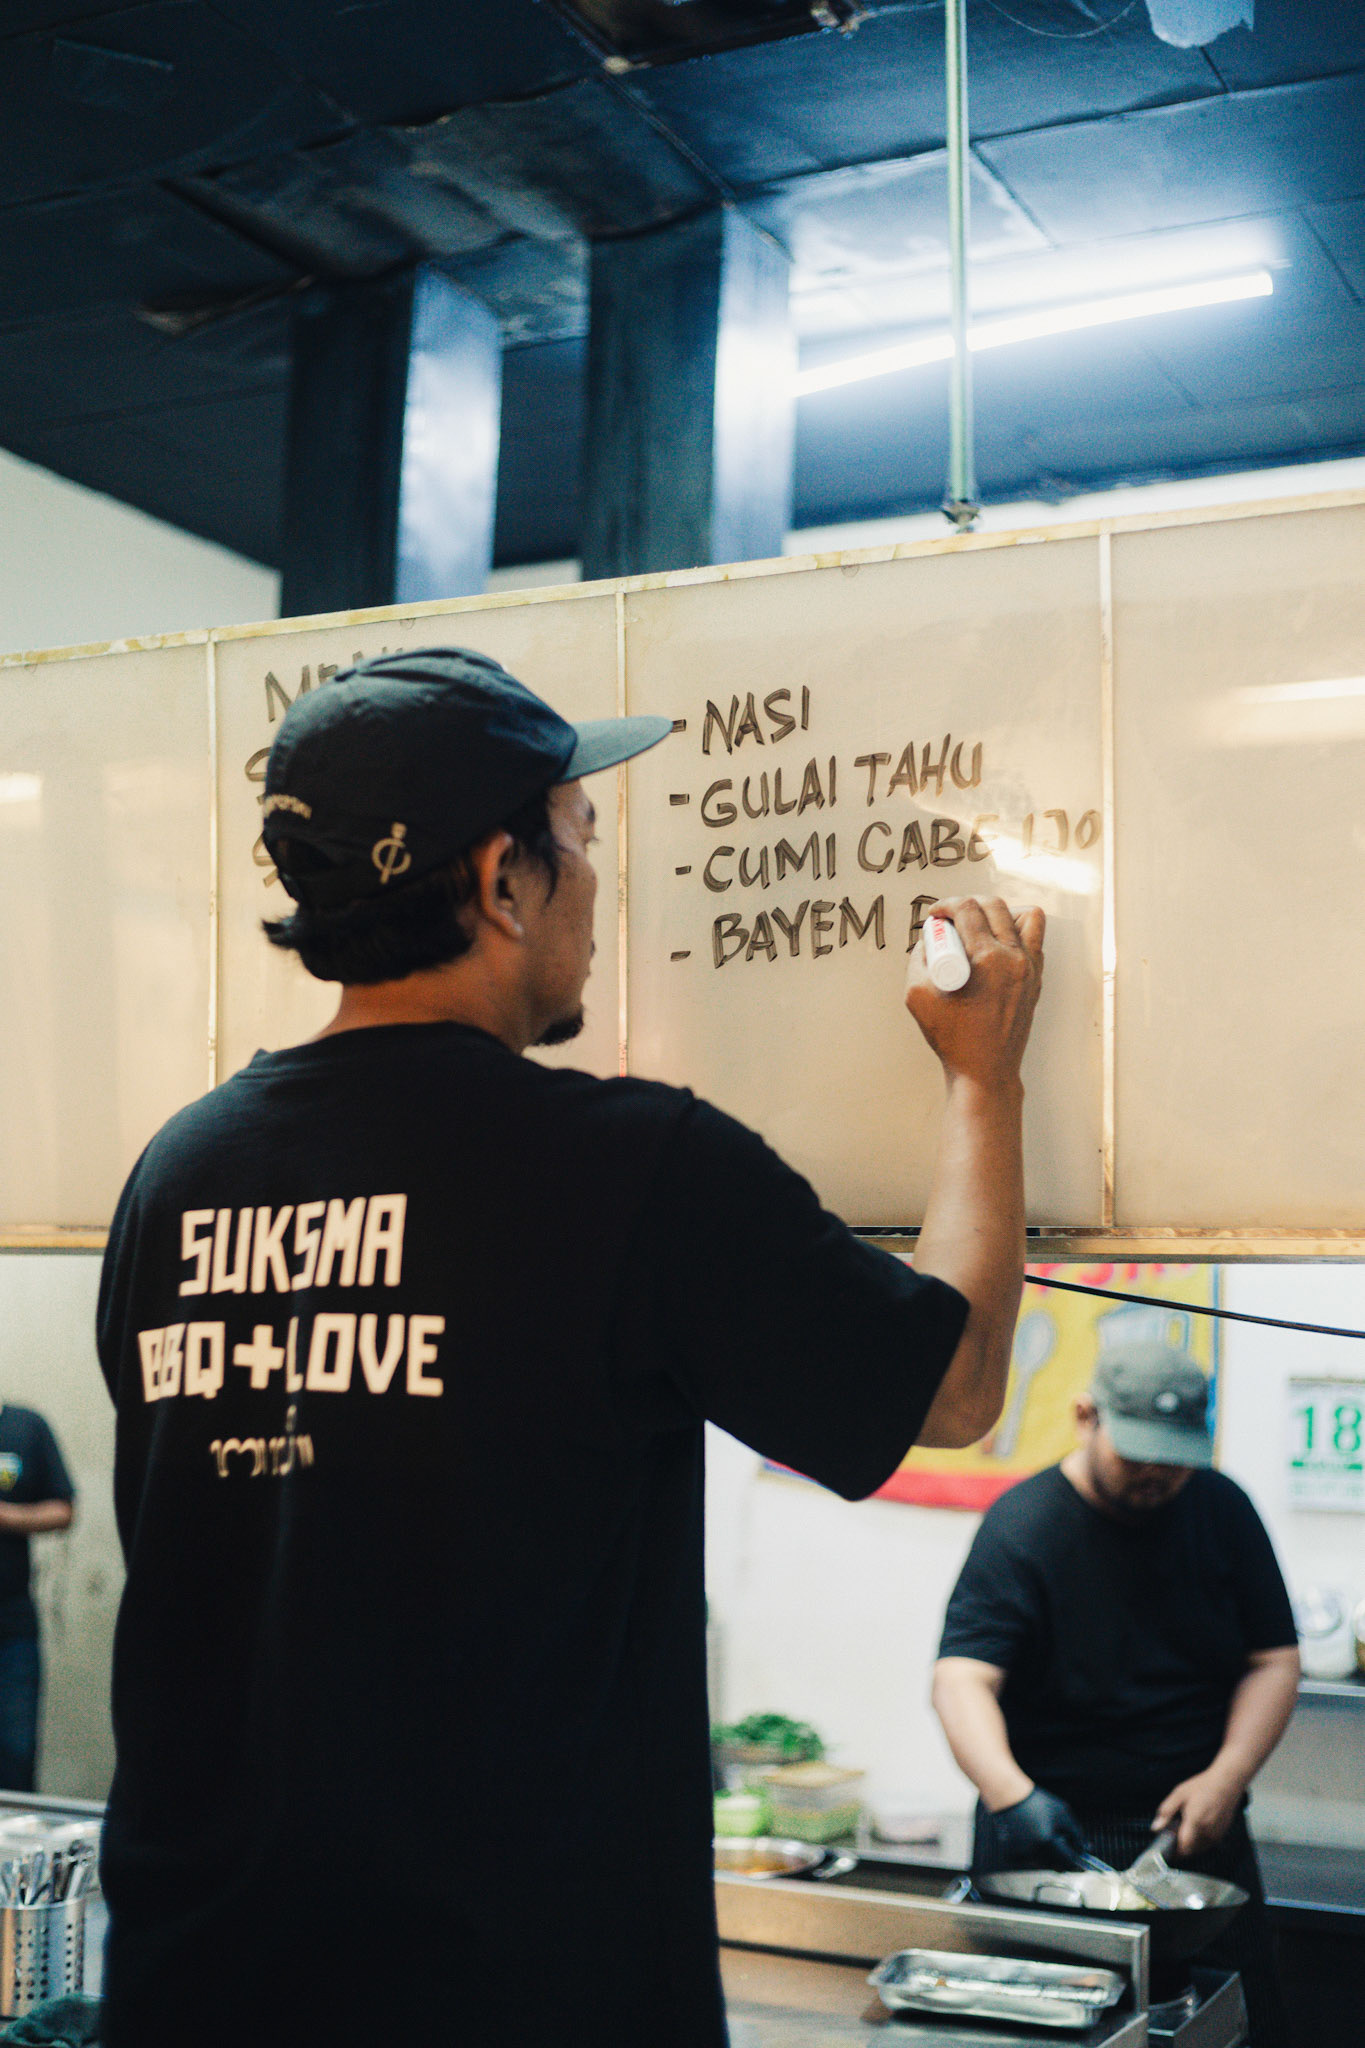 - NASI
- GULAI TAHU
- CUMI CABE IJO
- BAYEM
SUKSMA
BBQ+LOVE
18